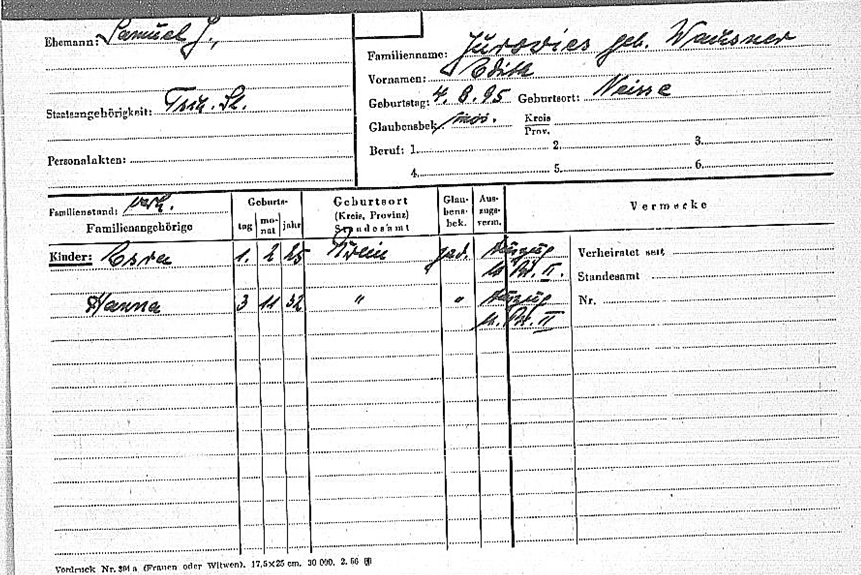 Ehemann: Samuel J.,
Staatsangehörigkeit:
Personalakten:
Familienname: Jurovics geb. Wachsner
Vornamen: Edith
Geburtstag: 4. 8. 95 Geburtsort: Neisse
Glaubensbek. mos. Kreis
Prov.
Beruf: 1. 2. 3.
4. 5. 6.
Familienstand: verh.
Familienangehörige
Geburts-
tag mo-nat jahr
Geburtsort
(Kreis, Provinz)
Standesamt
Glau-
bens-
bek.
Aus-
zugs-
verm.
Vermerke
Kinder: 1. 2 25 jüd. Auszug
II.
Hanna 3 11 32 " " Auszug
II
Verheiratet seit
Standesamt
Nr.
Vordruck Nr. 391 a (Frauen oder Witwen). 17,5×25 cm. 30 000. 2. 56